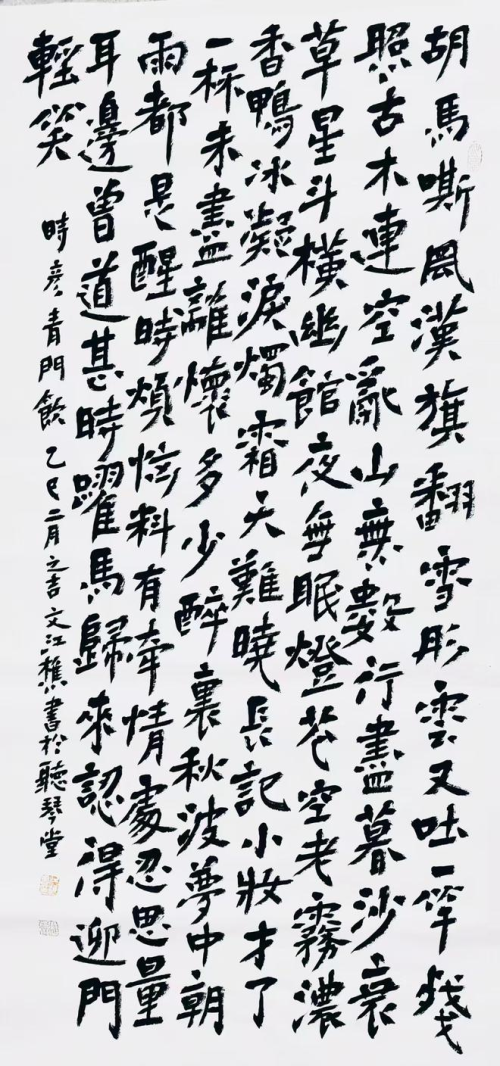 胡馬嘶風漢旗翻雪彤雲又吐一竿殘
照古木連空亂山無數行盡暮沙衰
草星斗橫幽館夜無眠燈花空老霧濃
香鴨冰凝淚燭霜天難曉長記小妝才了
一杯未盡離懷多少醉裏秋波夢中朝
雨都是醒時煩惱料有牽情處忍思量
耳邊曾道甚時躍馬歸來認得迎門
輕笑
時彥青門飲 乙巳二月之吉文江樵書於聽琴堂